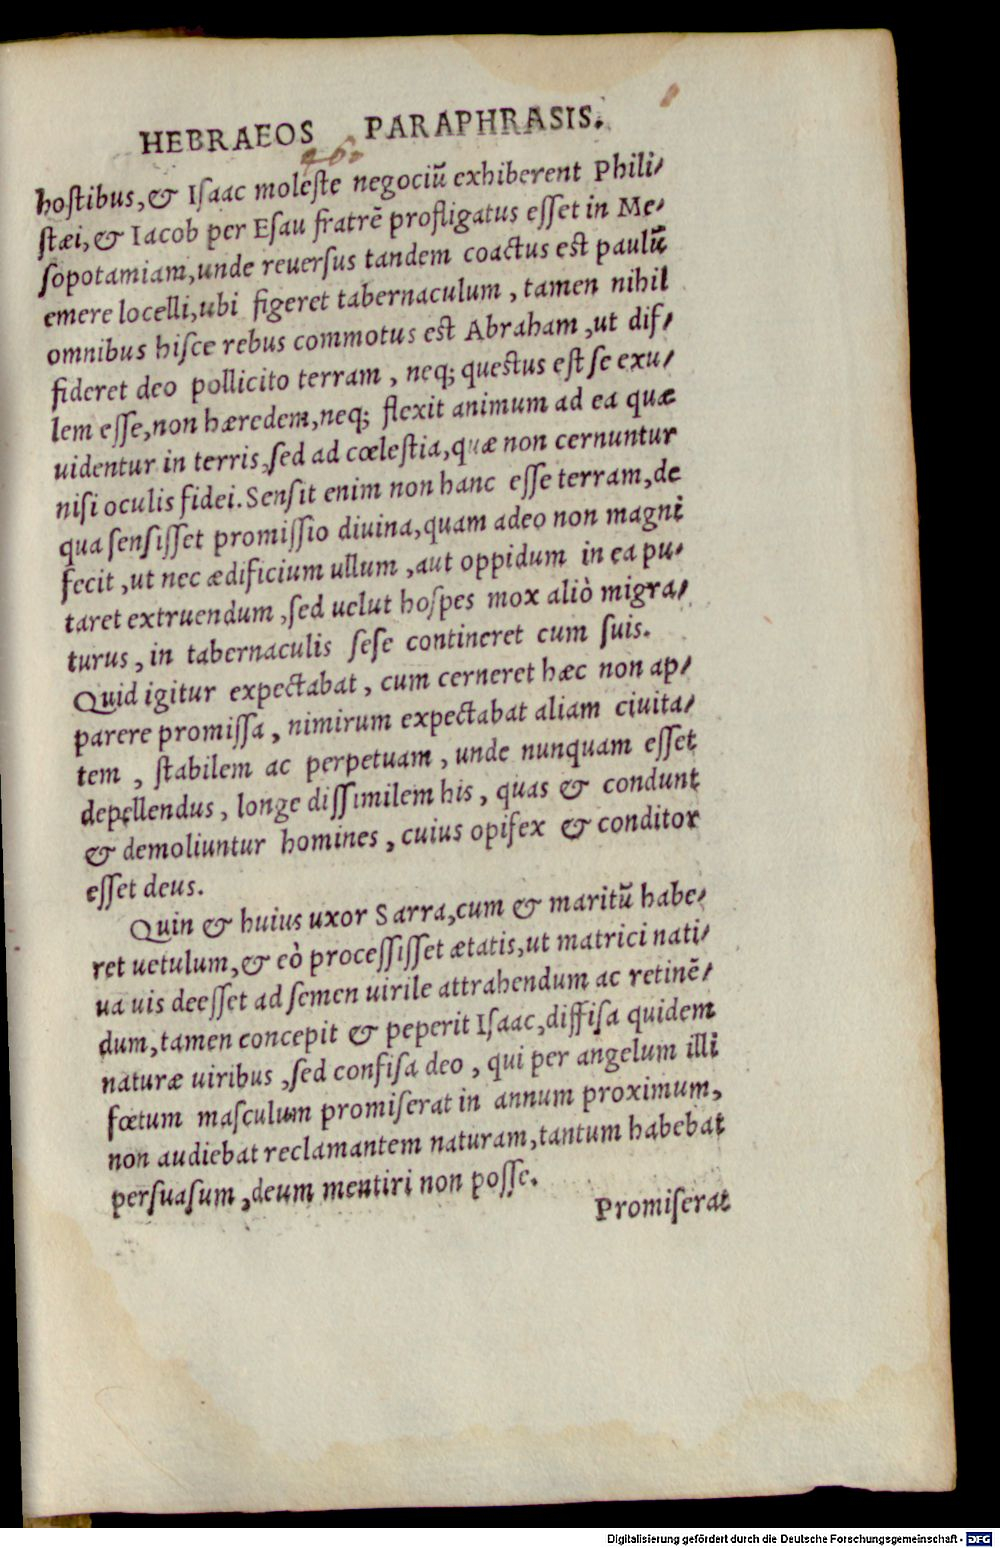 HEBRAEOS PARAPHRASIS.
46.
hostibus, & Isaac moleste negociū exhiberent Phili⸗
stæi, & Iacob per Esau fratrē profligatus esset in Me⸗
sopotamiam, unde reuersus tandem coactus est paulū
emere locelli, ubi figeret tabernaculum, tamen nihil
omnibus hisce rebus commotus est Abraham, ut dif⸗
fideret deo pollicito terram, neq; questus est se exu⸗
lem esse, non hæredem, neq; flexit animum ad ea quæ
uidentur in terris, sed ad cœlestia, quæ non cernuntur
nisi oculis fidei. Sensit enim non hanc esse terram, de
qua sensisset promissio diuina, quam adeo non magni
fecit, ut nec ædificium ullum, aut oppidum in ea pu⸗
taret extruendum, sed uelut hospes mox aliò migra⸗
turus, in tabernaculis sese contineret cum suis.
Quid igitur expectabat, cum cerneret hæc non ap⸗
parere promissa, nimirum expectabat aliam ciuita⸗
tem, stabilem ac perpetuam, unde nunquam esset
depellendus, longe dissimilem his, quas & condunt
& demoliuntur homines, cuius opifex & conditor
esset deus.
Quin & huius uxor Sarra, cum & maritū habe⸗
ret uetulum, & eò processisset ætatis, ut matrici nati⸗
ua uis deesset ad semen uirile attrahendum ac retinē⸗
dum, tamen concepit & peperit Isaac, diffisa quidem
naturæ uiribus, sed confisa deo, qui per angelum illi
fœtum masculum promiserat in annum proximum,
non audiebat reclamantem naturam, tantum habebat
persuasum, deum mentiri non posse.
Promiserat
Digitalisierung gefördert durch die Deutsche Forschungsgemeinschaft - DFG